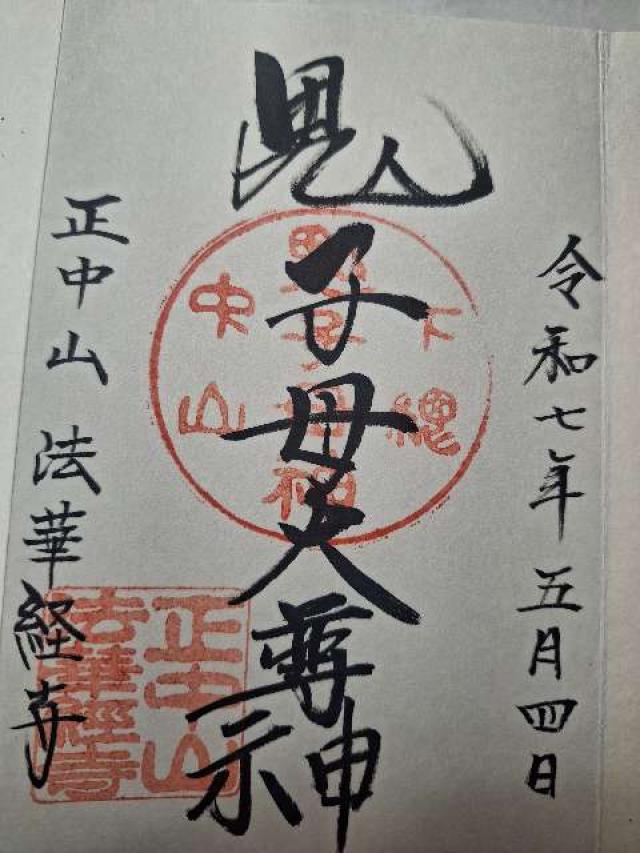 令和七年五月四日
鬼子母大尊神
下總
鬼子母神
中山
正中山 法華経寺
正中山
法華經寺